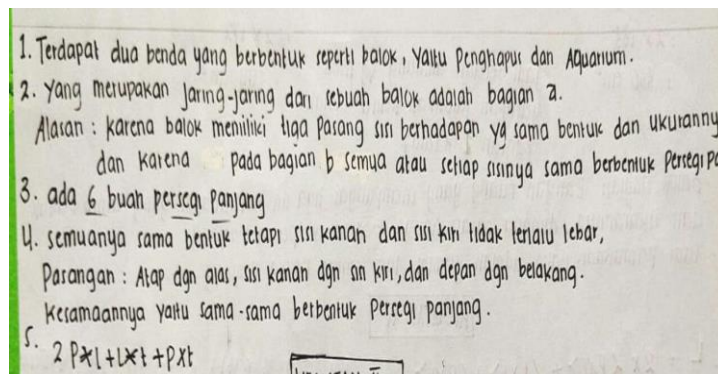 1. Terdapat dua benda yang berbentuk seperti balok, yaitu Penghapus dan Aquarium.
2. Yang merupakan Jaring-jaring dari sebuah balok adalah bagian a.
Alasan : karena balok memiliki tiga pasang sisi berhadapan yg sama bentuk dan ukuranny
dan karena pada bagian b semua atau setiap sisinya sama berbentuk Persegi Pa
3. ada 6 buah persegi panjang
4. semuanya sama bentuk tetapi sisi kanan dan sisi kiri tidak terlalu lebar,
Pasangan : Atap dgn alas, sisi kanan dgn sisi kiri, dan depan dgn belakang.
Kesamaannya yaitu sama-sama berbentuk Persegi panjang.
5.
2 P×l+l×t+p×t